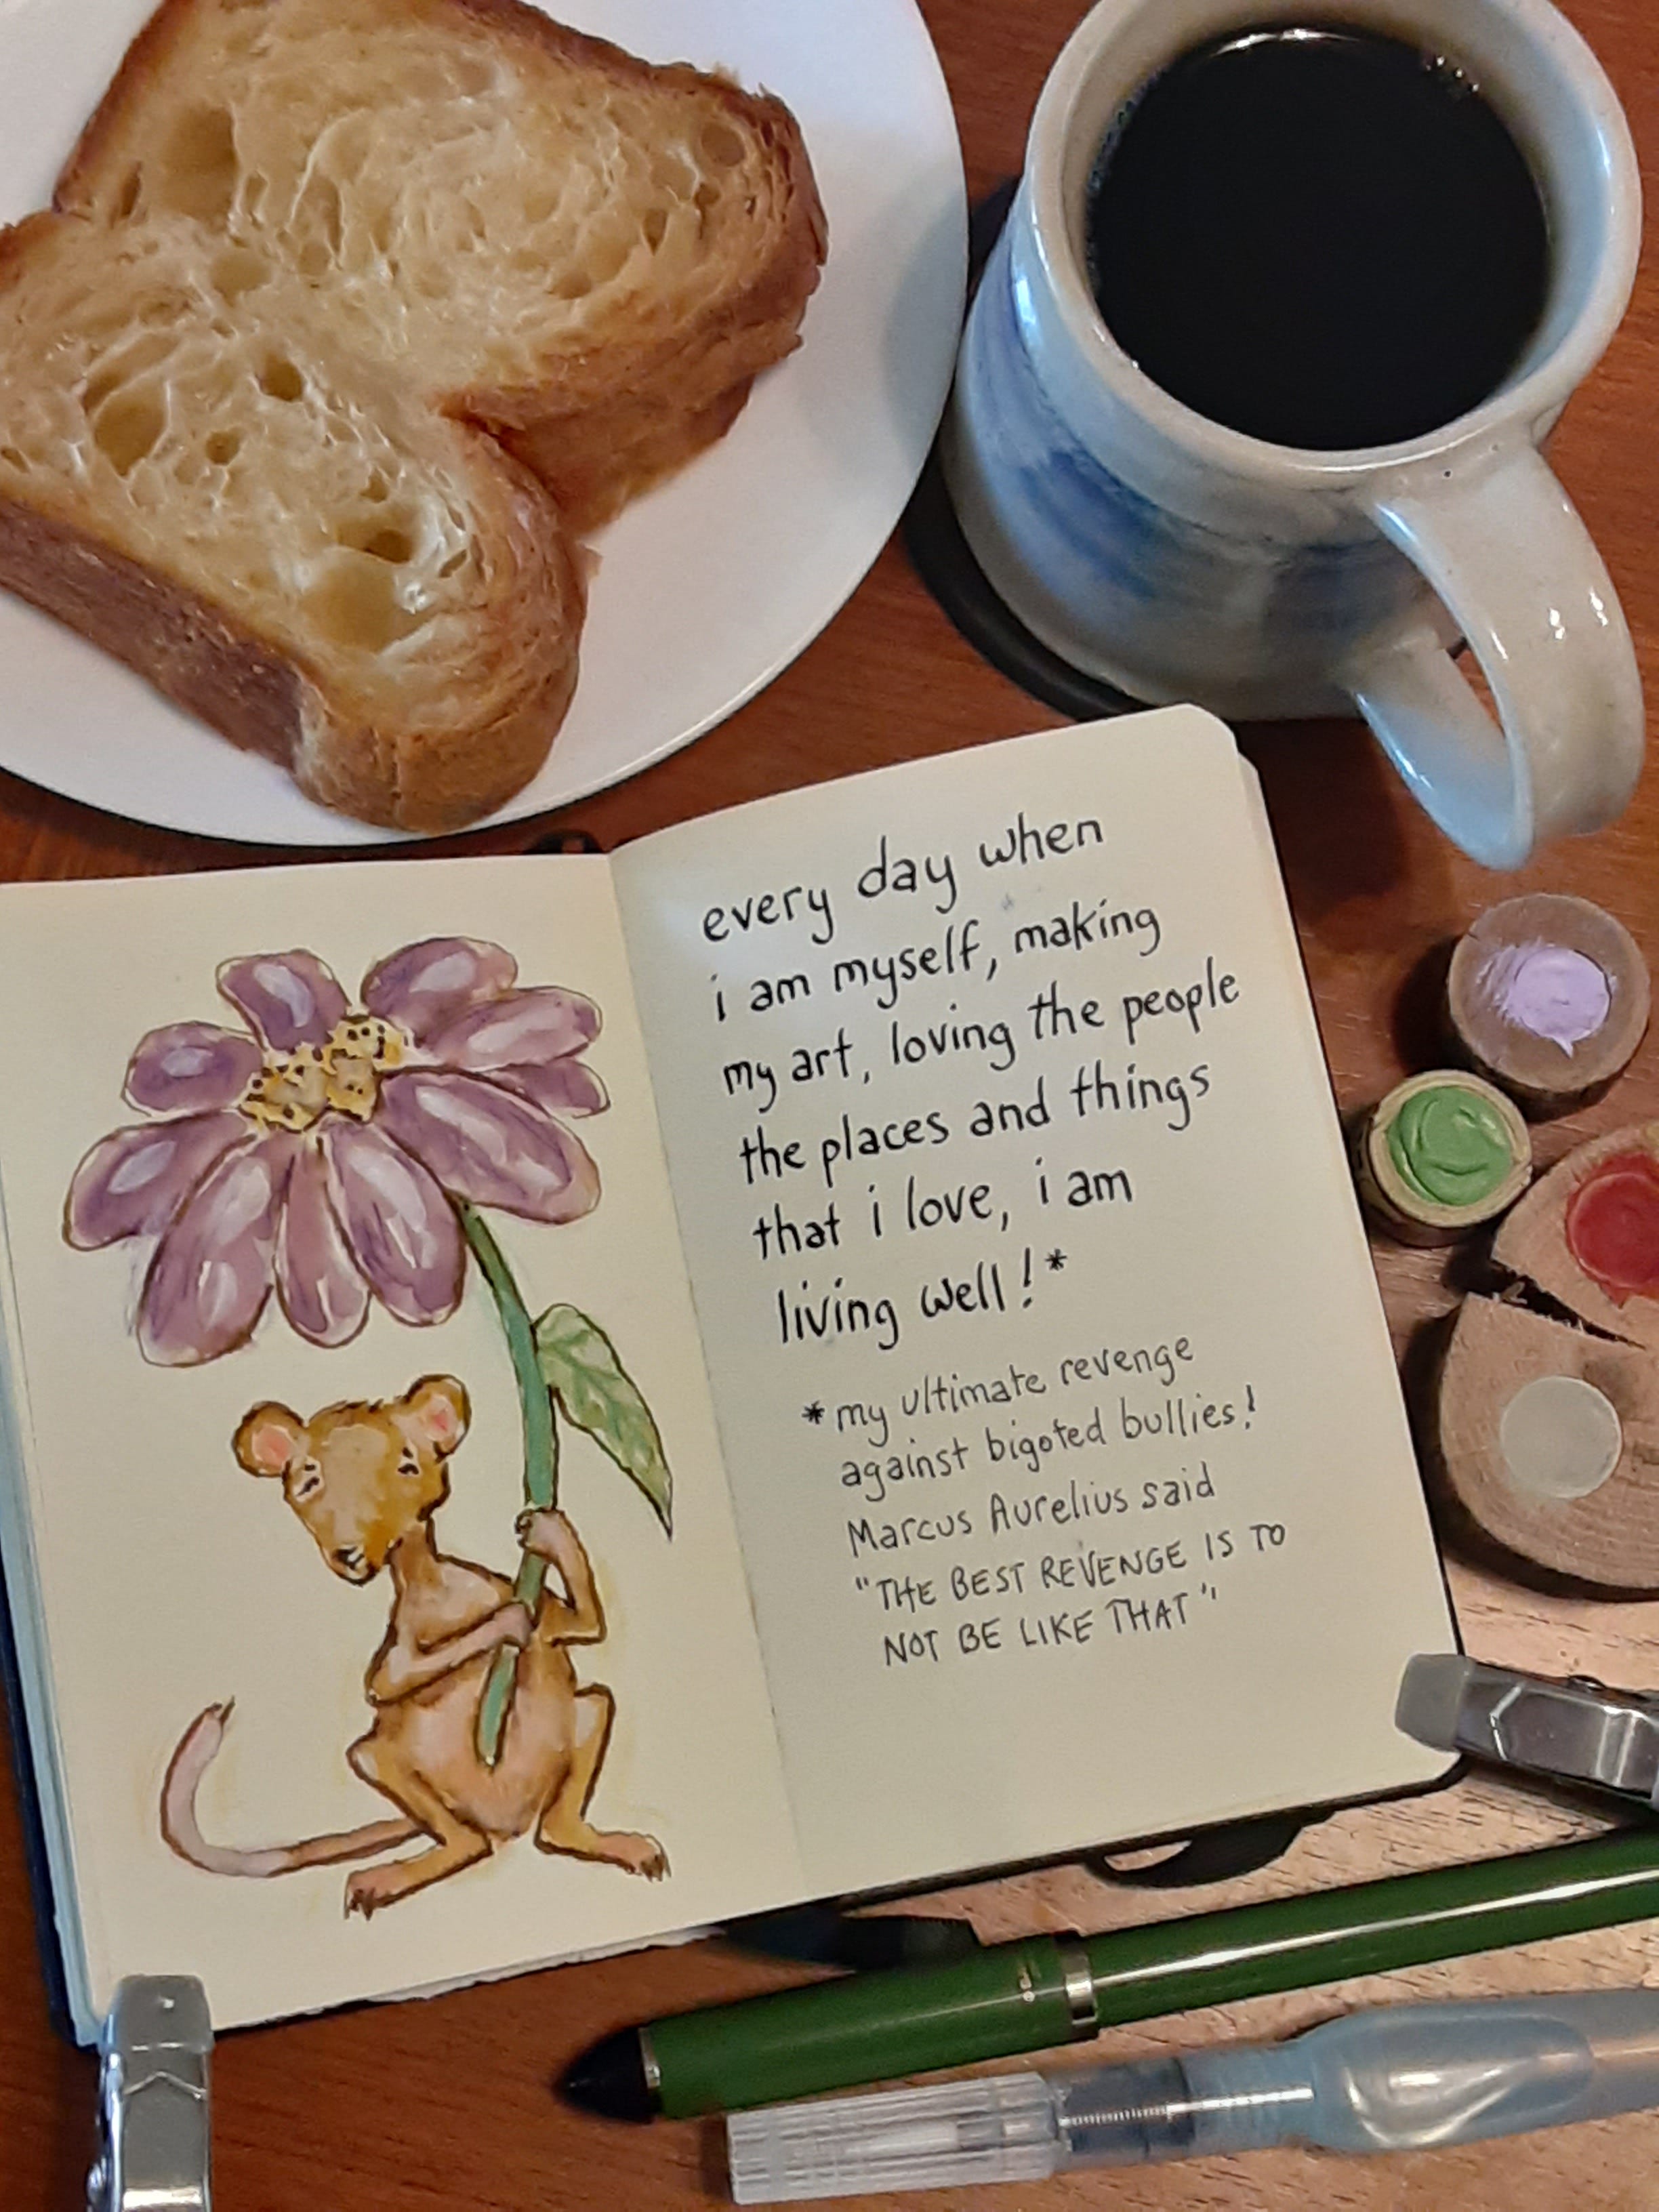 every day when
i am myself, making
my art, loving the people
the places and things
that i love, i am
living well!*
*my ultimate revenge
against bigoted bullies!
Marcus Aurelius said
"THE BEST REVENGE IS TO
NOT BE LIKE THAT"